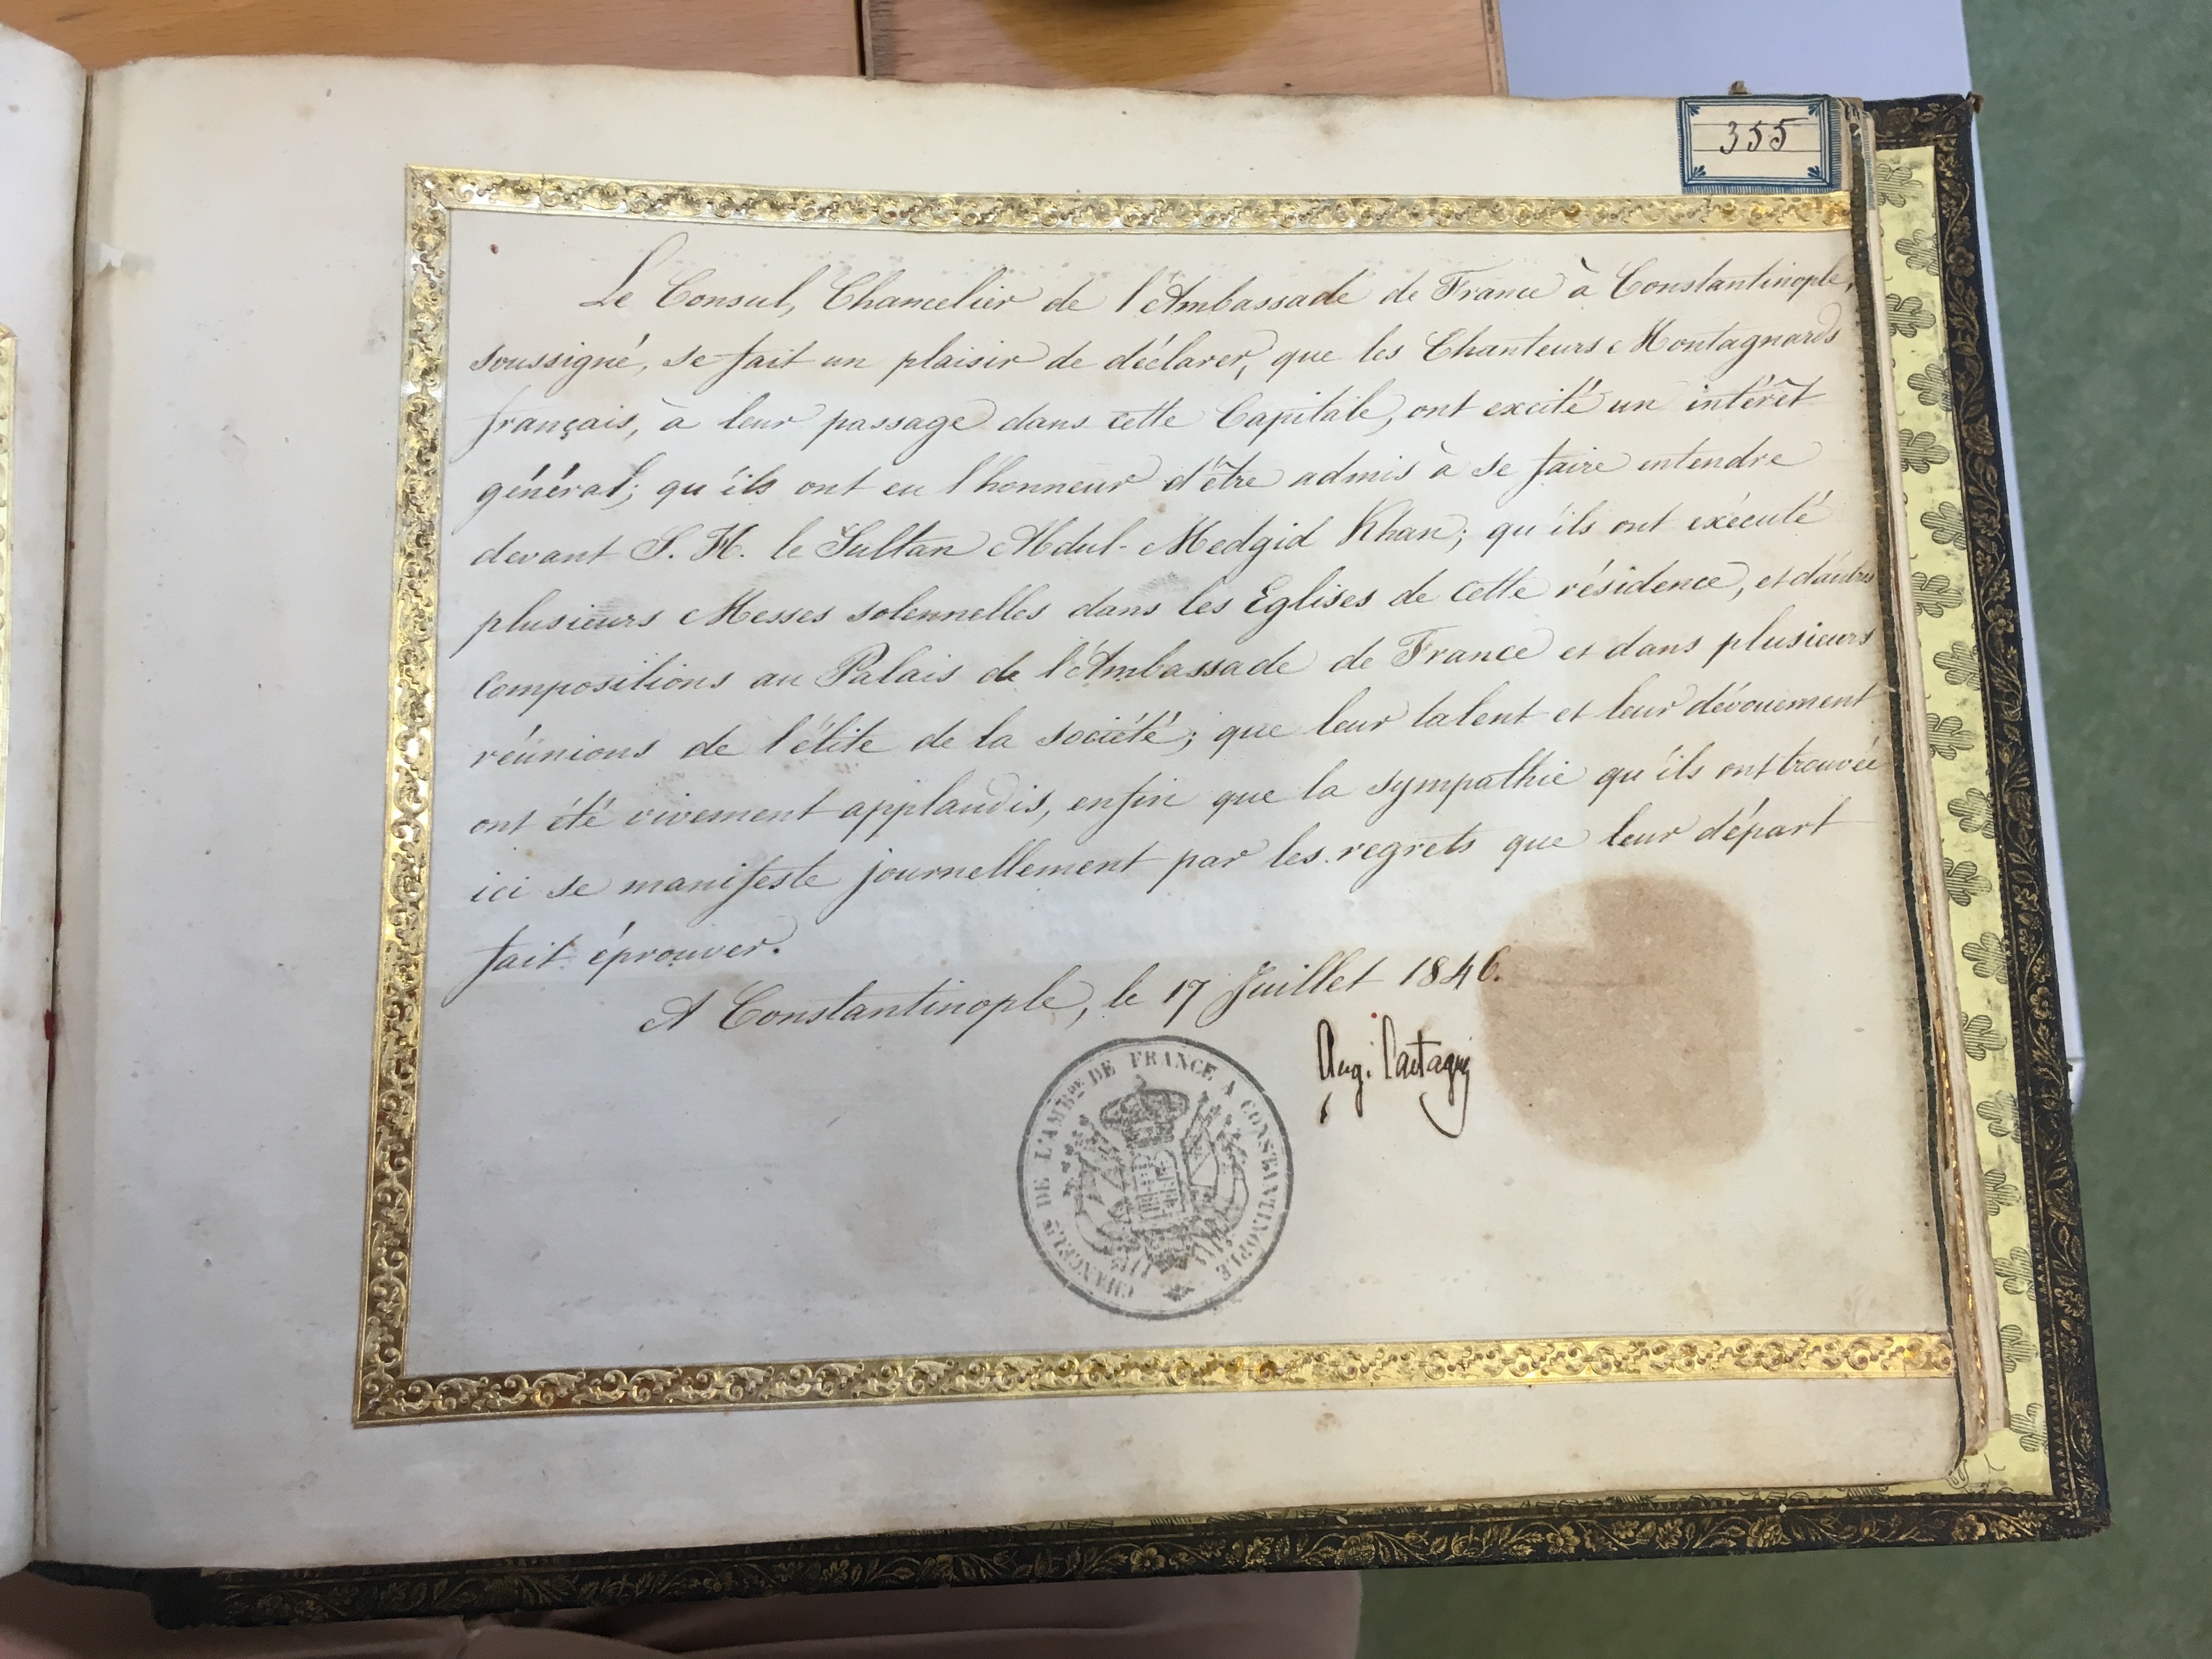 355
Le Consul, Chancelier de l'Ambassade de France à Constantinople,
soussigné, se fait un plaisir de déclarer, que les Chanteurs Montagnards
français, à leur passage dans cette Capitale, ont excité un intérêt
général; qu'ils ont eu l'honneur d'être admis à se faire entendre
devant S. H. le Sultan Abdul-Medgid Khan; qu'ils ont exécuté
plusieurs Messes solennelles dans les Eglises de cette résidence, et d'autres
compositions au Palais de l'Ambassade de France et dans plusieurs
réunions de l'élite de la société; que leur talent et leur dévouement
ont été vivement applaudis, enfin que la sympathie qu'ils ont trouvée
ici se manifeste journellement par les regrets que leur départ
fait éprouver.
A Constantinople, le 17 Juillet 1846.
Aug.
CHANCELRIE DE L'AMBDE DE FRANCE A CONSTANTINOPLE